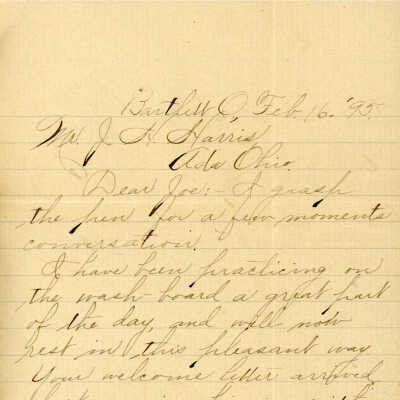 Bartlett O, Feb. 16. '95.
Mr. J. A. Harris,
Ada Ohio.
Dear Joe:- I grasp
the pen for a few moments
conversation.
I have been practicing on
the wash board a great part
of the day, and will now
rest in this pleasant way.
Your welcome letter arrived